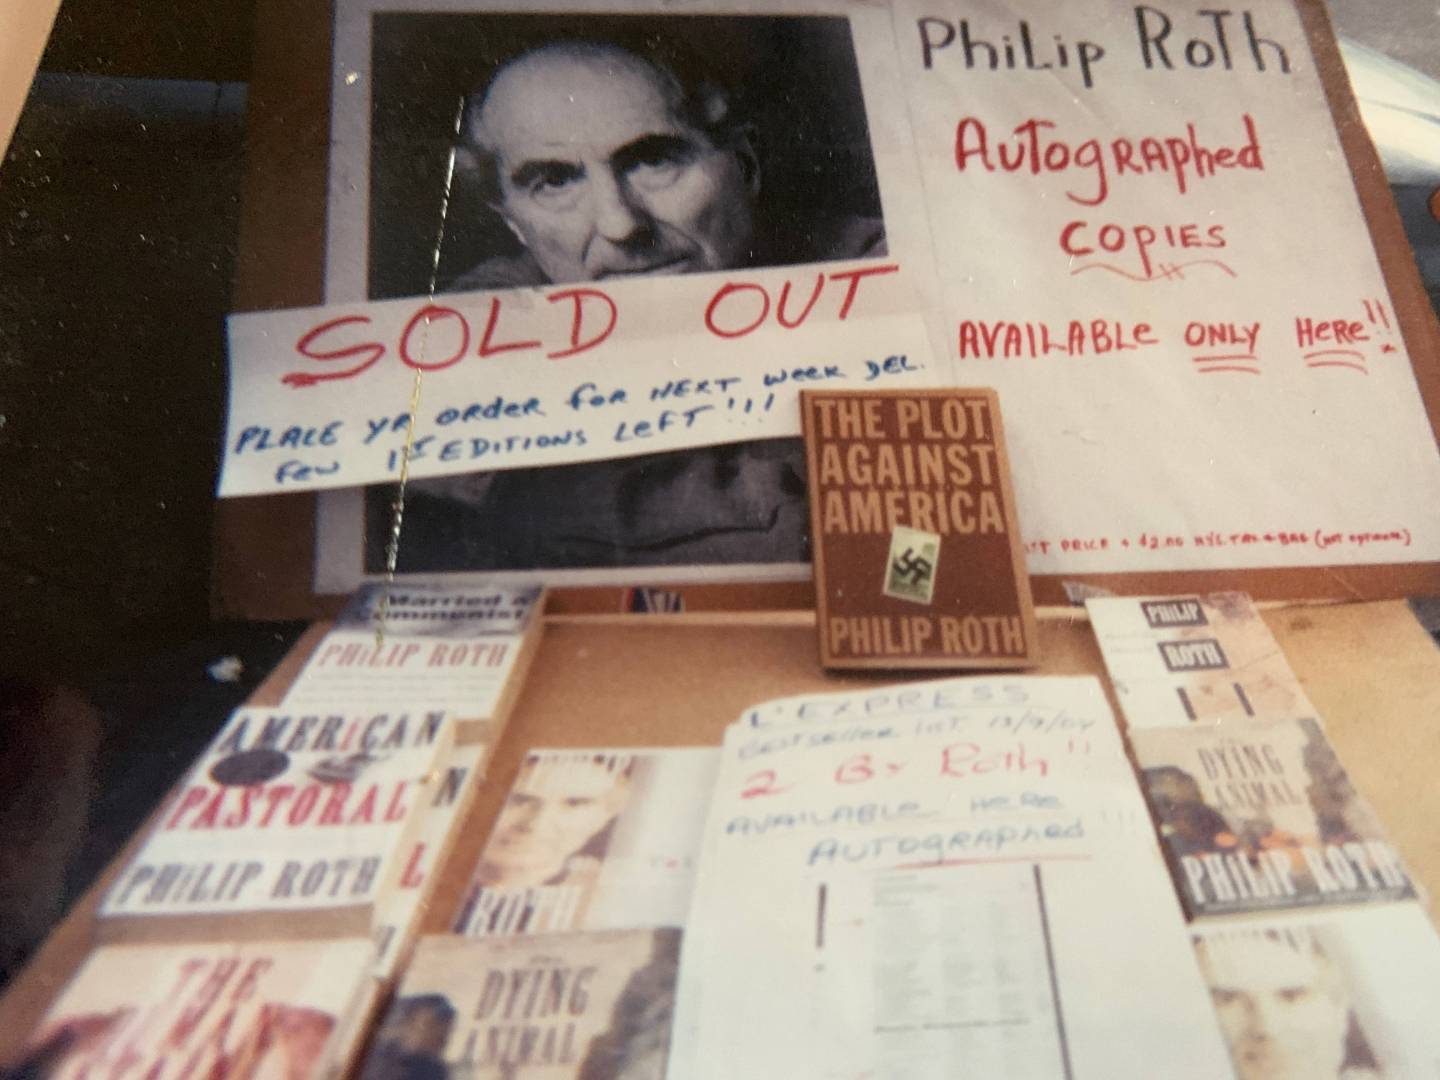 PHiLip ROTh
AUTOgRAphed
COpIES
AVAILABLe ONLY HeRe!!
SOLD OUT
PLACE YR ORdeR foR NEXT week DEL.
few 1ST EDITIONS LefT!!!
THE PLOT
AGAINST
AMERICA
PHILIP ROTH
PRICE + $2.00 NYC TAX + BAG
Married a
Communist
PHILIP ROTH
AMERICAN
PASTORAL
PHILIP ROTH
THE
ROTH
DYING
ANIMAL
L'EXPRESS
BESTSELLER LIST
2 By Roth!!
AVAILABLE HeRe
AUTOGRAPhed!!!
PHILIP
ROTH
DYING
ANIMAL
PHILIP ROTH